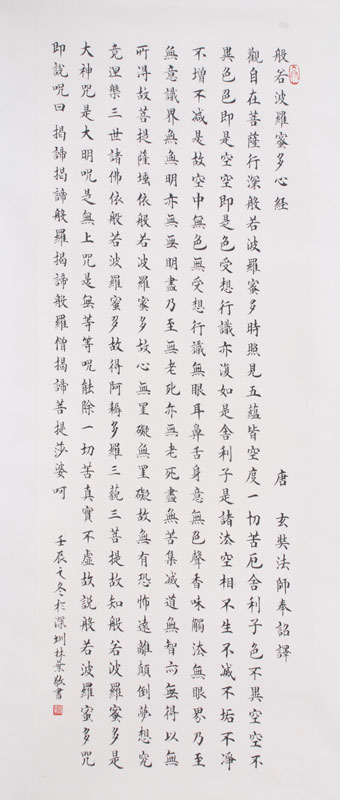 般若波羅蜜多心經
唐 玄奘法師奉詔譯
觀自在菩薩行深般若波羅蜜多時照見五蘊皆空度一切苦厄舍利子色不異空空不
異色色即是空空即是色受想行識亦復如是舍利子是諸法空相不生不滅不垢不淨
不增不減是故空中無色無受想行識無眼耳鼻舌身意無色聲香味觸法無眼界乃至
無意識界無無明亦無無明盡乃至無老死亦無老死盡無苦集滅道無智亦無得以無
所得故菩提薩埵依般若波羅蜜多故心無罣礙無罣礙故無有恐怖遠離顛倒夢想究
竟涅槃三世諸佛依般若波羅蜜多故得阿耨多羅三藐三菩提故知般若波羅蜜多是
大神咒是大明咒是無上咒是無等等咒能除一切苦真實不虛故說般若波羅蜜多咒
即說咒曰 揭諦揭諦般羅揭諦般羅僧揭諦菩提莎婆呵
壬辰之冬於深圳林葉敬書